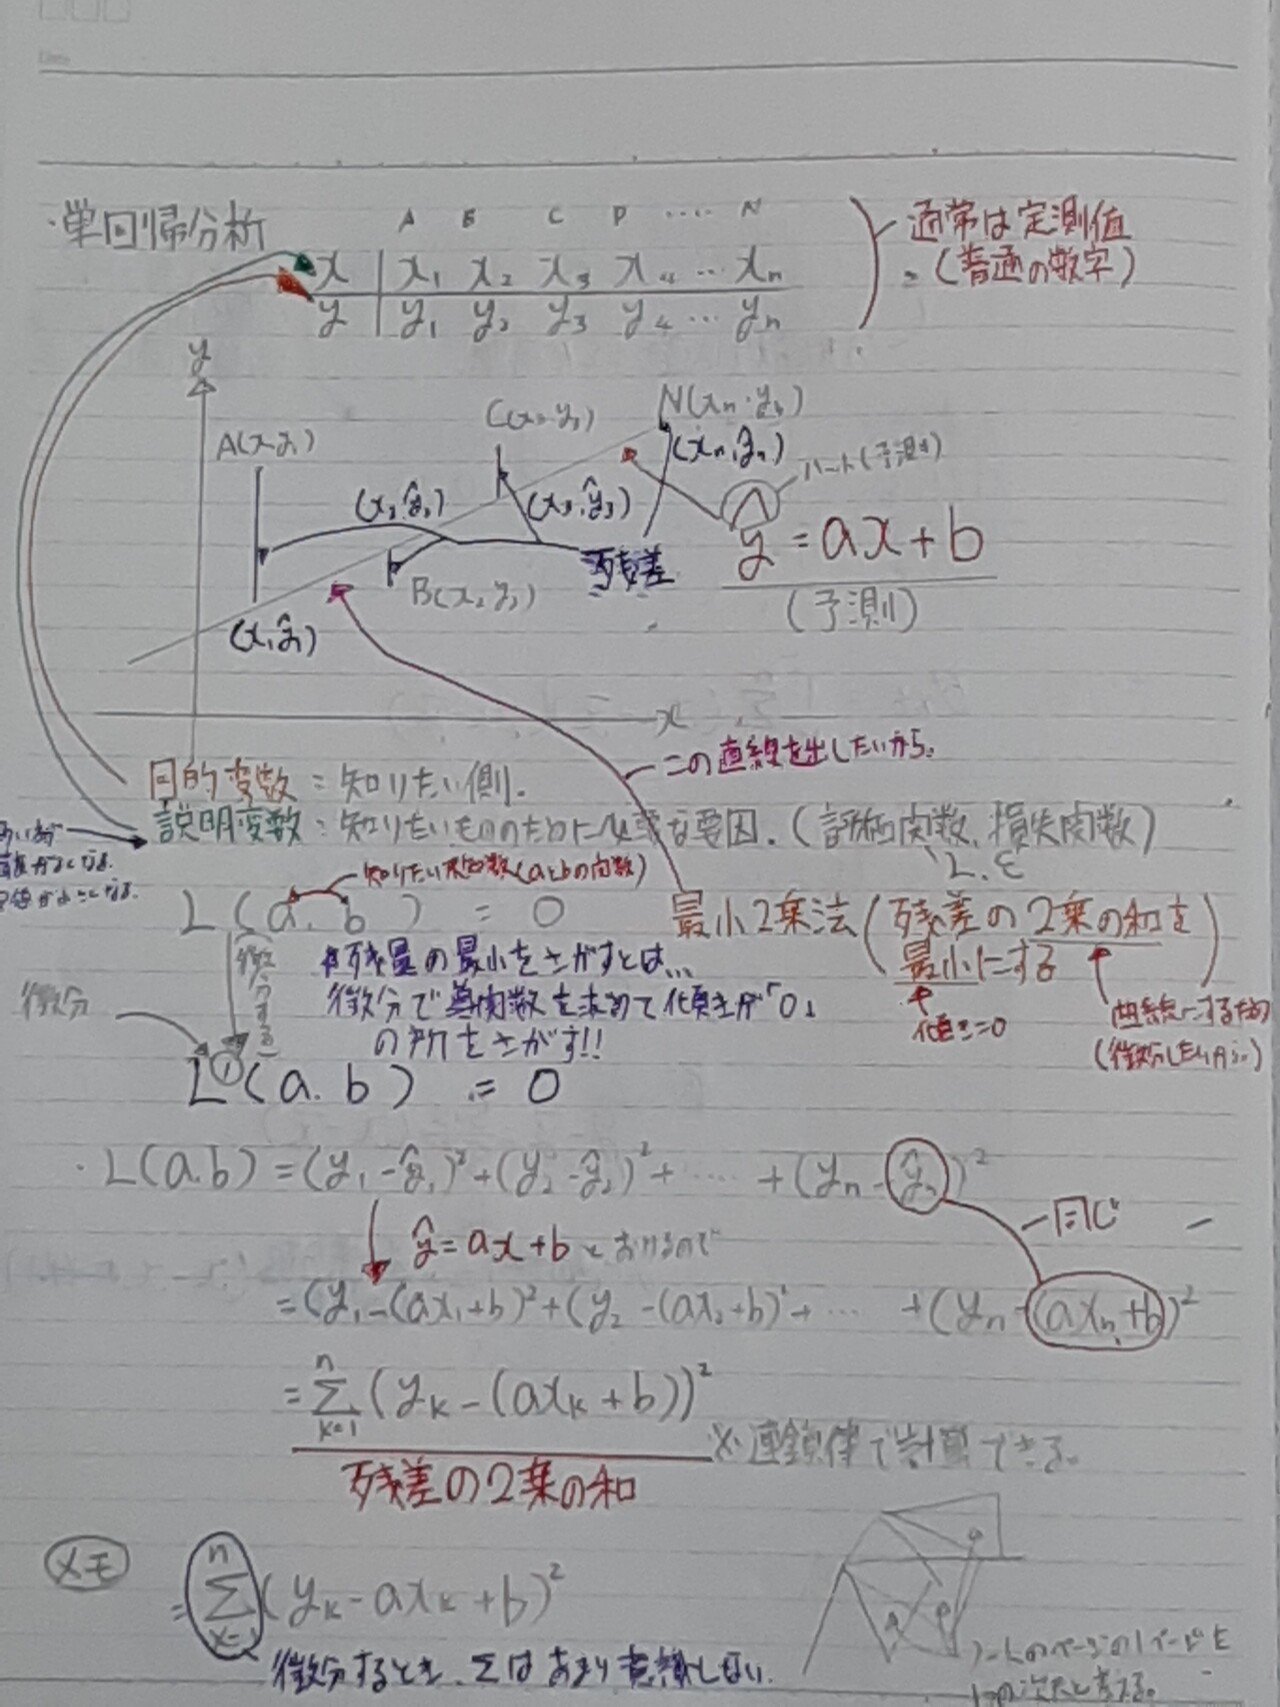 ・単回帰分析
A B C D ‥‥ N
x | x₁ x₂ x₃ x₄ … xₙ
y | y₁ y₂ y₃ y₄ … yₙ
通常は定測値
=(普通の数字)
y
A(x₁y₁)
C(x₃・y₃)
N(xₙ・yₙ)
(xₙ,ŷₙ)
ハット(予測)
(x₂,ŷ₂)
(x₃,ŷ₃)
残差
ŷ = ax + b
(予測)
B(x₂ y₂)
(x₁ŷ₁)
x
この直線を出したいから。
目的変数 : 知りたい側.
説明変数 : 知りたいもののために必要な要因. (評価関数、損失関数)
L. ε
知りたい未知数(aとbの関数)
L (a. b) = 0
最小2乗法(残差の2乗の和を
最小にする)
傾き=0
曲線にするため
微分する
微分
残量の最小をさがすとは...
微分で導関数を求めて傾きが「0」
の所をさがす!!
L①(a. b) = 0
・L(a.b) = (y₁-ŷ₁)²+(y₂-ŷ₂)²+ ‥‥ +(yₙ-ŷₙ)²
同じ
ŷ=ax+b とおけるので
=(y₁-(ax₁+b)²+(y₂-(ax₂+b)²+ ‥‥ +(yₙ-(axₙ+b)²
= Σ[k=1→n] (yₖ-(axₖ+b))²
※連鎖律で計算できる。
残差の2乗の和
メモ
= Σ(yₖ-axₖ+b)²
微分するとき、Σはあまり意識しない.